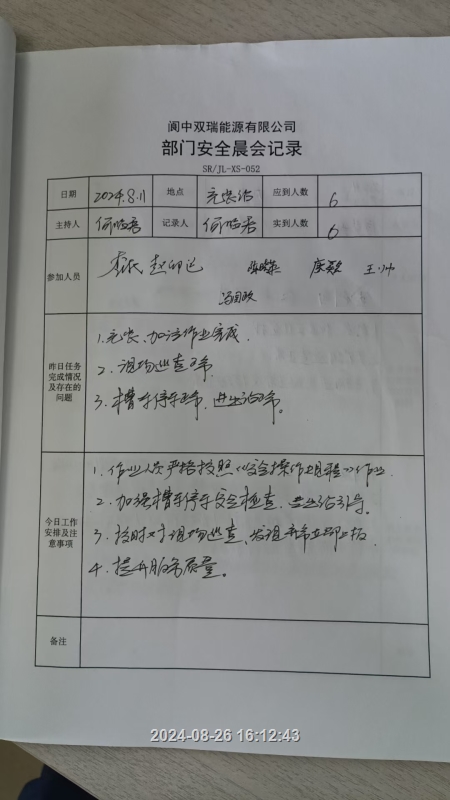 阆中双瑞能源有限公司
部门安全晨会记录
SR/JL-XS-052
日期 2024.8.11 地点 充装站 应到人数 6
主持人 记录人 实到人数 6
参加人员
昨日任务完成情况及存在的问题
1.充装、加注作业完成.
2.现场巡查正常.
3.槽车停车正常,进出站正常。
今日工作安排及注意事项
1.作业人员严格按照《安全操作规程》作业.
2.加强槽车停车安全检查、进出站引导.
3.按时对现场巡查、发现异常立即上报.
4.提升服务质量。
备注
2024-08-26 16:12:43